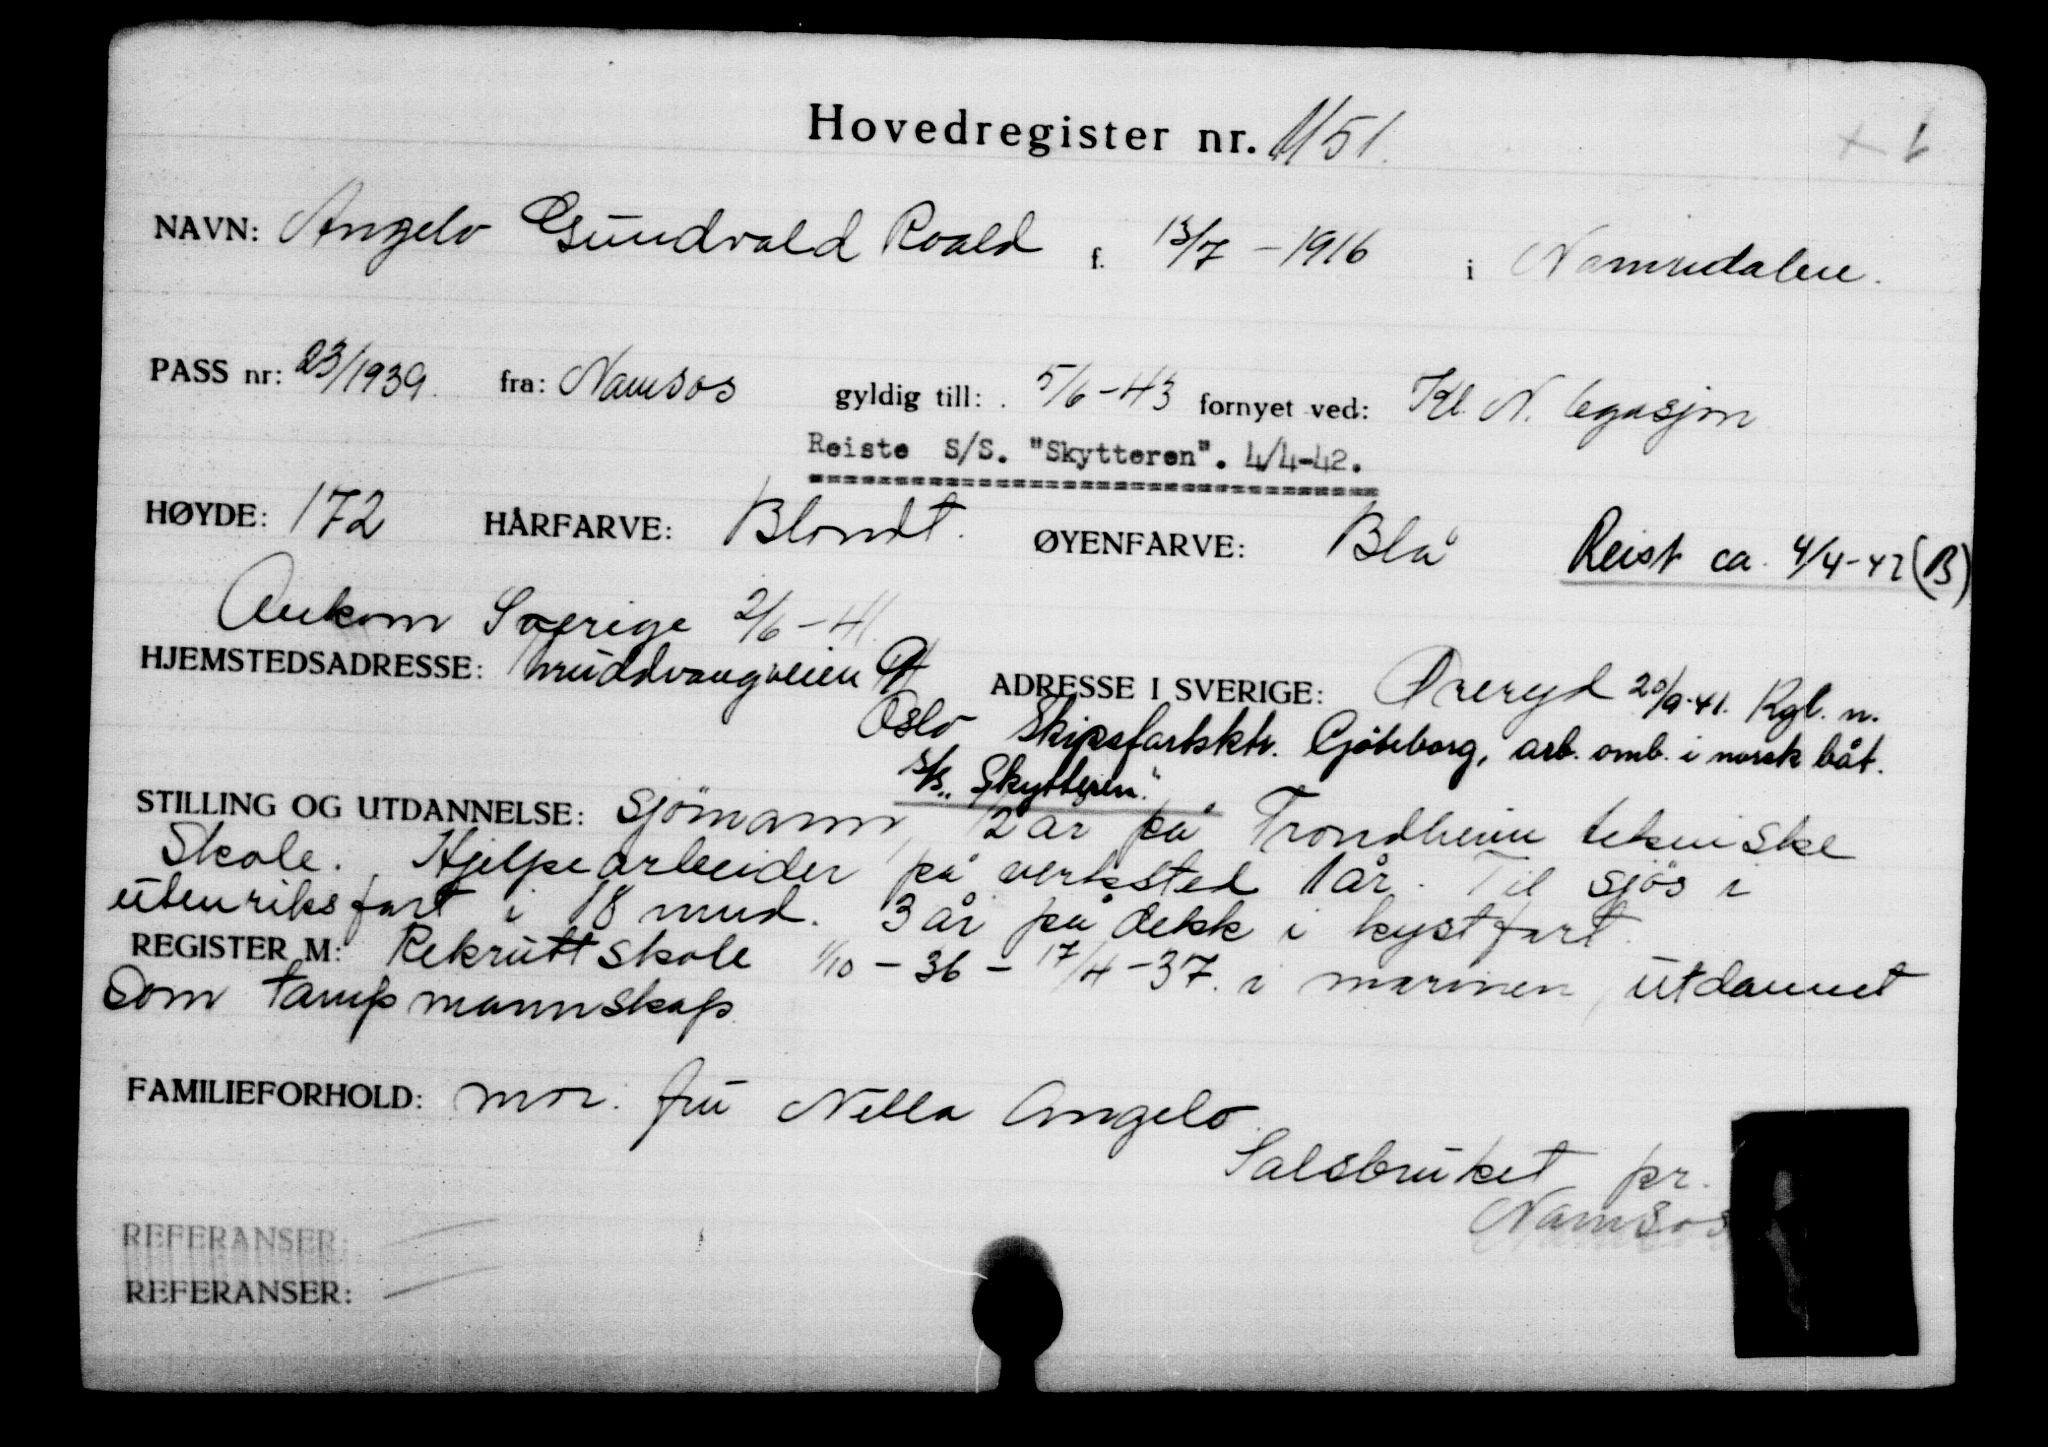 Hovedregister nr. 1151.
NAVN: Angelo Gundvald Roald f. 13/7 - 1916 i Namndalen.
PASS nr: 23/1939. fra: Namsos gyldig till: . 5/6 - 43 fornyet ved: Kl. N. legasjon
Reiste S/S. "Skytteren". 4/4-42.
HØYDE: 172 HÅRFARVE: Blondt. ØYENFARVE: Blå Reist ca. 4/4-42 (B)
Ankom Sverige 2/6 - 41.
HJEMSTEDSADRESSE: Thruddvangveien ADRESSE I SVERIGE: Øreryd 20/9-41. Rgl. n.
Oslo Skipsfartsktr. Gjöteborg, arb. omb. i norsk båt.
S/S. „Skytteren".
STILLING OG UTDANNELSE: sjömann, 2 år på Trondheim tekniske
Skole. Hjelpearbeider på verksted 1 år. Til sjös i
utenriksfart i 18 mnd. 3 år på dekk i kystfart.
REGISTER M: Rekruttskole 1/10 - 36 - 17/4 - 37. i marinen, utdannet
som tampmannskap.
FAMILIEFORHOLD: mor. fru Nella Angelo.
Salsbruket pr.
Namsos
REFERANSER:
REFERANSER: